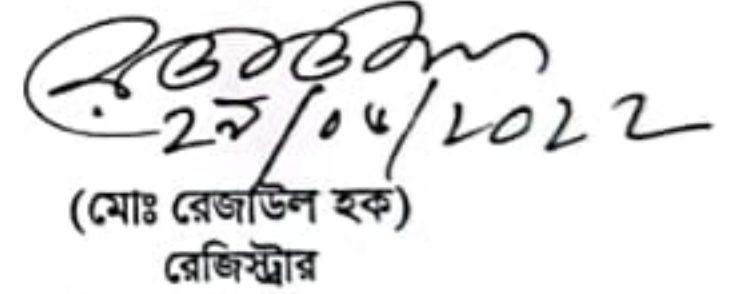 ২৯/০৫/২০২২
(মোঃ রেজাউল হক)
রেজিস্ট্রার